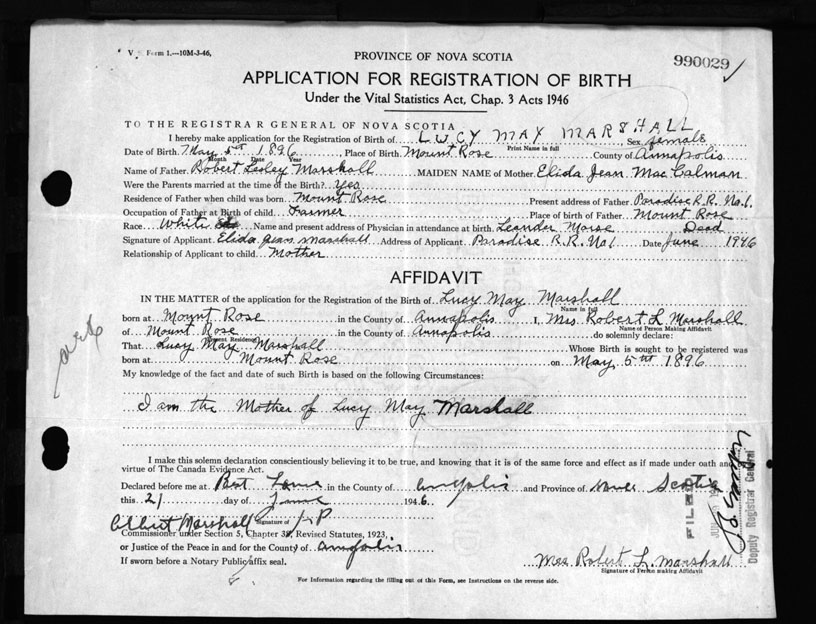 V. S. Form 1.—10M-3-46.
990029
PROVINCE OF NOVA SCOTIA
APPLICATION FOR REGISTRATION OF BIRTH
Under the Vital Statistics Act, Chap. 3 Acts 1946
TO THE REGISTRAR GENERAL OF NOVA SCOTIA
I hereby make application for the Registration of Birth of LUCY MAY MARSHALL Sex female
Print Name in full
Date of Birth May 5th 1896 Place of Birth Mount Rose County of Annapolis
Month Date Year
Name of Father Robert Lesley Marshall MAIDEN NAME of Mother Elida Jean MacCalman
Were the Parents married at the time of the Birth? Yes
Residence of Father when child was born Mount Rose Present address of Father Paradise R.R. No.1.
Occupation of Father at Birth of child Farmer Place of birth of Father Mount Rose
Race White Name and present address of Physician in attendance at birth Leander Morse Dead
Signature of Applicant Elida Jean Marshall Address of Applicant Paradise R.R. No1 Date June 1946
Relationship of Applicant to child Mother
AFFIDAVIT
IN THE MATTER of the application for the Registration of the Birth of Lucy May Marshall
Name in full
born at Mount Rose in the County of Annapolis I, Mrs Robert L Marshall
Name of Person Making Affidavit
of Mount Rose in the County of Annapolis do solemnly declare:
Present Residence
That Lucy May Marshall Whose Birth is sought to be registered was
born at Mount Rose on May 5th 1896
My knowledge of the fact and date of such Birth is based on the following Circumstances:
I am the Mother of Lucy May Marshall
I make this solemn declaration conscientiously believing it to be true, and knowing that it is of the same force and effect as if made under oath and by
virtue of The Canada Evidence Act.
Declared before me at Port Lorne in the County of and Province of Nova Scotia
this 21 day of June 1946.
Albert Marshall J P
Signature of
Commissioner under Section 5, Chapter 38, Revised Statutes, 1923,
or Justice of the Peace in and for the County of
If sworn before a Notary Public affix seal.
Mrs Robert L. Marshall
Signature of Person making Affidavit
For Information regarding the filling out of this Form, see Instructions on the reverse side.
FILED
Deputy Registrar General